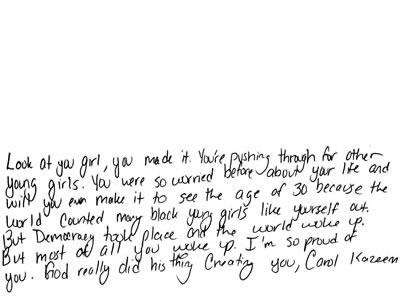 Look at you girl, you made it. You're pushing through for other
young girls. You were so worried before about your life and
will you even make it to see the age of 30 because the
world counted many black yung girls like yourself out.
But Democracy took place and the world woke up.
But most of all you woke up. I'm so proud of
you. God really did his thing Creating you, Carol Kazeem